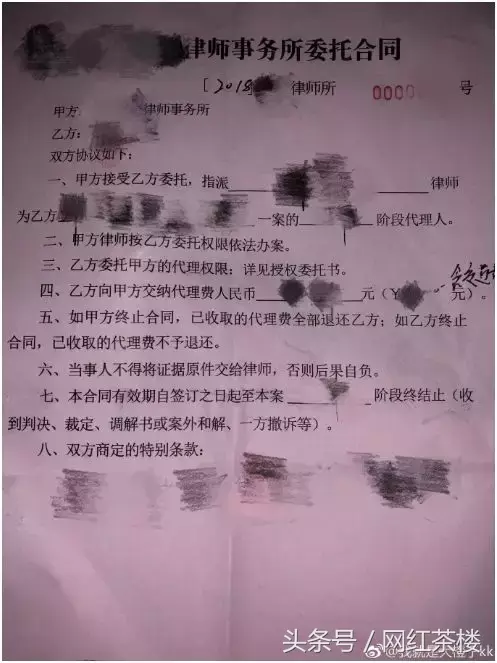 律师事务所委托合同
〔2018〕 律师所 0000 号
甲方: 律师事务所
乙方:
双方协议如下:
一、甲方接受乙方委托，指派 律师
为乙方 一案的 阶段代理人。
二、甲方律师按乙方委托权限依法办案。
三、乙方委托甲方的代理权限：详见授权委托书。
四、乙方向甲方交纳代理费人民币 元（¥ 元）。
五、如甲方终止合同，已收取的代理费全部退还乙方；如乙方终止
合同，已收取的代理费不予退还。
六、当事人不得将证据原件交给律师，否则后果自负。
七、本合同有效期自签订之日起至本案 阶段终结止（收
到判决、裁定、调解书或案外和解、一方撤诉等）。
八、双方商定的特别条款：
头条号／网红茶楼